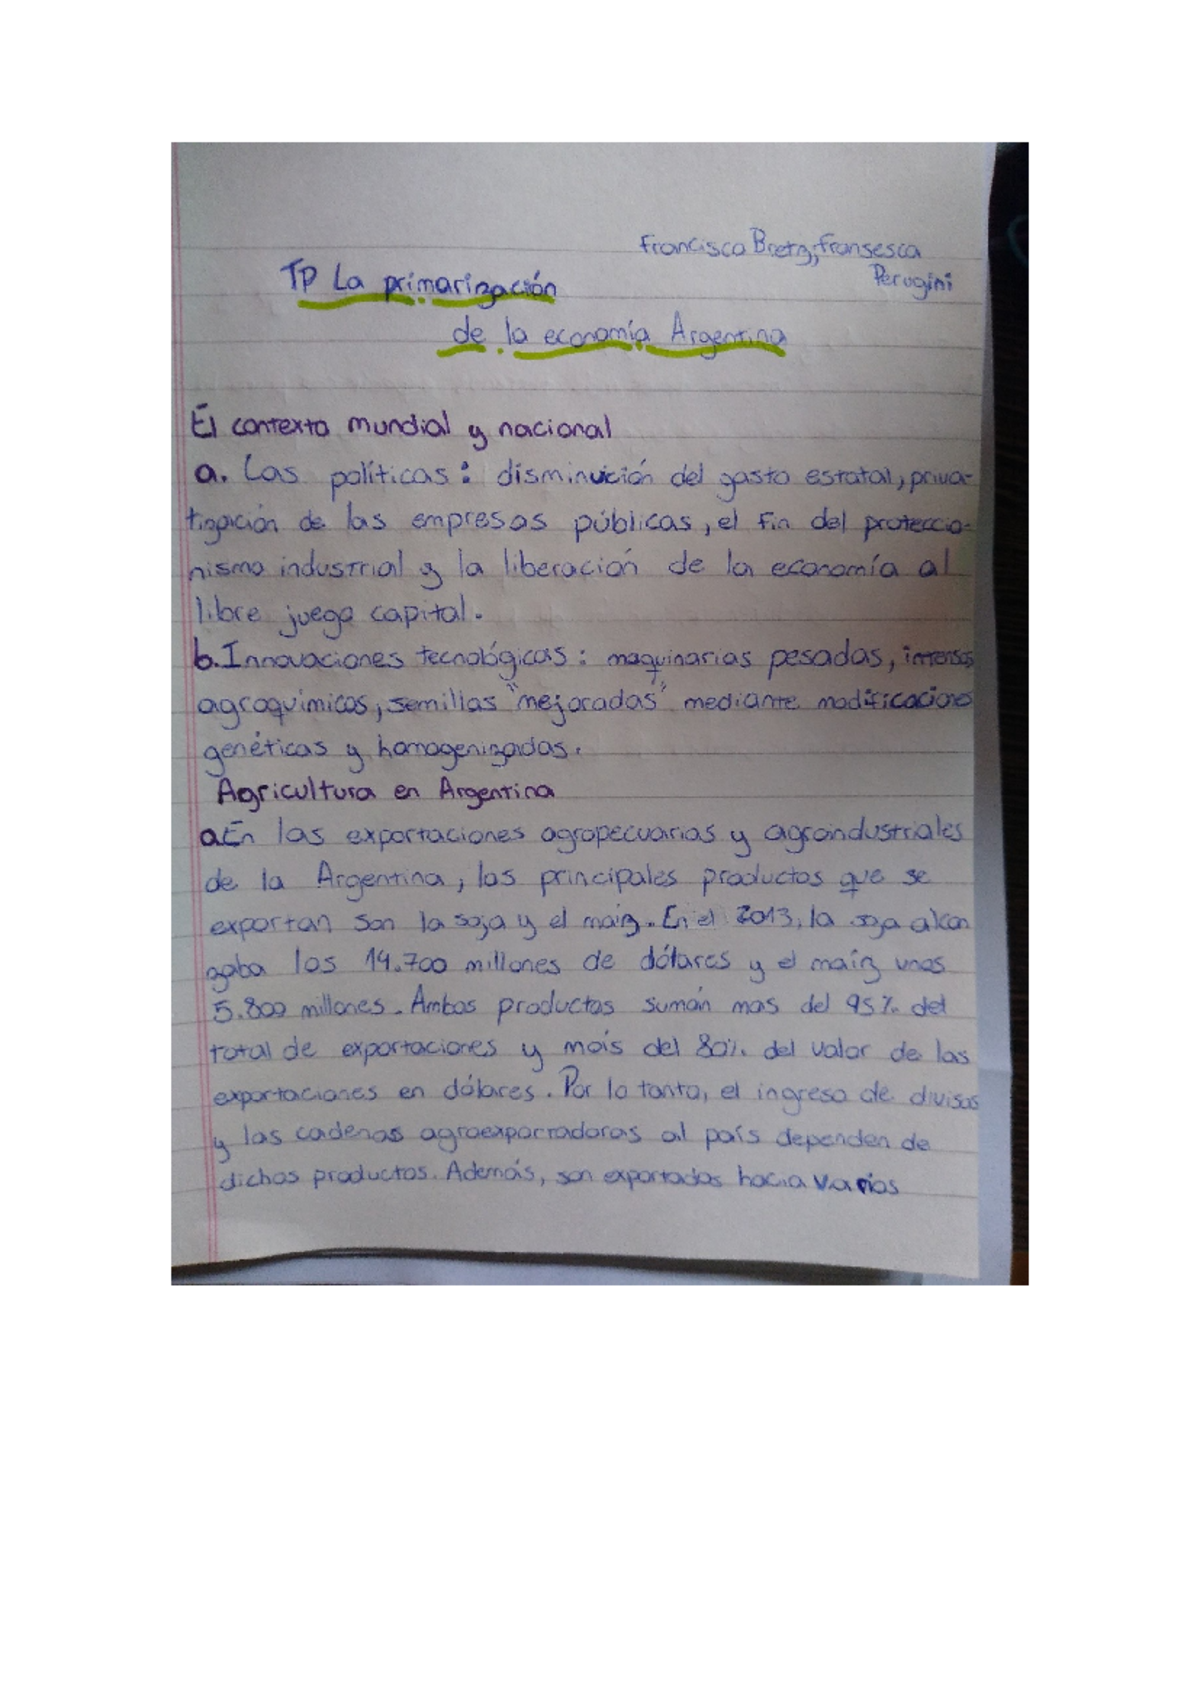 Francisca Bretz; fransesca
Perugini
TP La primarización
de la economía Argentina
El contexto mundial y nacional
a. Las políticas: disminución del gasto estatal, priva-
tización de las empresas públicas, el fin del proteccio-
nismo industrial y la liberación de la economía al
libre juego capital.
b. Innovaciones tecnológicas: maquinarias pesadas, intensos
agroquímicos, semillas "mejoradas" mediante modificacione
genéticas y homogenizadas.
Agricultura en Argentina
a. En las exportaciones agropecuarias y agroindustriales
de la Argentina, los principales productos que se
exportan son la soja y el maíz. En el 2013, la soja alcan
zaba los 19.700 millones de dólares y el maíz unos
5.800 millones. Ambos productos sumán mas del 95% del
total de exportaciones y más del 80% del valor de las
exportaciones en dólares. Por lo tanto, el ingreso de divisas
y las cadenas agroexportradoras al país dependen de
dichos productos. Además, son exportados hacia varios